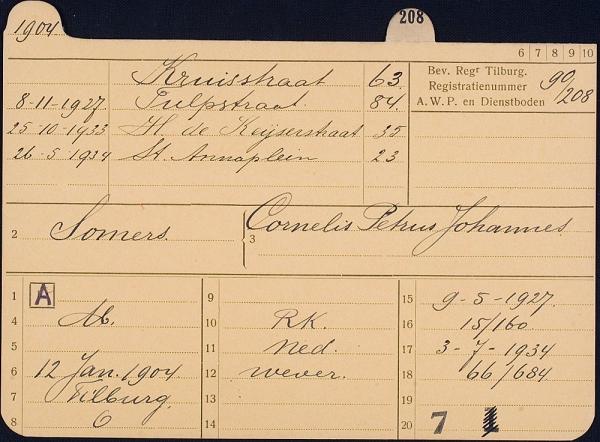 1904
208
6 7 8 9 10
Kruisstraat 63.
8-11-1927. Tulpstraat 84.
25-10-1933 H. de Keijserstraat 35
26-5-1934 St. Annaplein 23
Bev. Regr Tilburg.
Registratienummer
A.W.P. en Dienstboden
90/208
2 Somers.
3 Cornelis Petrus Johannes.
1 A
4 M.
6 12 Jan. 1904
7 Tilburg.
8 O
9
10 R.K.
11 Ned.
12 wever.
14
15 9-5-1927.
16 15/160
17 3-7-1934
18 66/684
19
20 7